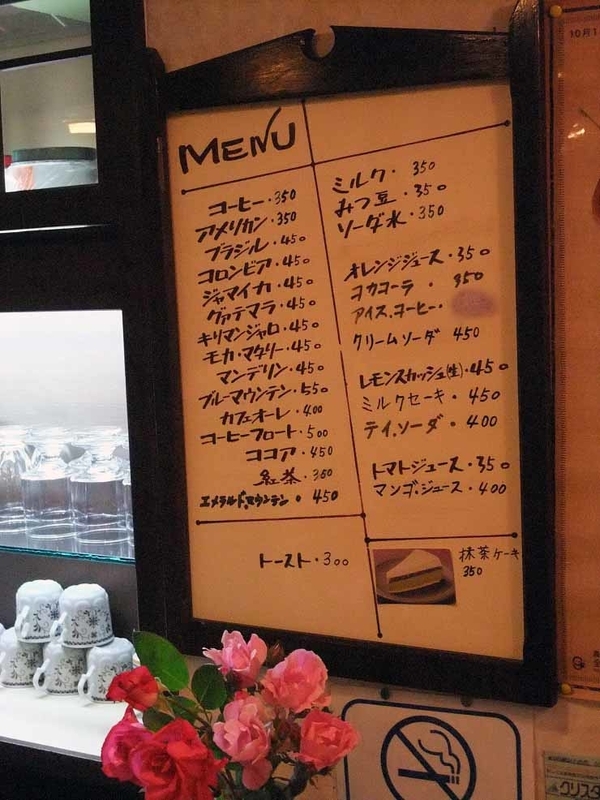 MENU
コーヒー・350
アメリカン・350
ブラジル・450
コロンビア・450
ジャマイカ・450
グァテマラ・450
キリマンジャロ・450
モカ・マタリー・450
マンデリン・450
ブルーマウンテン・550
カフェオーレ・400
コーヒーフロート・500
ココア・450
紅茶・350
エメラルド.マウンテン・450
トースト・300
ミルク・350
みつ豆・350
ソーダ水・350
オレンジジュース・350
コカコーラ・350
アイス.コーヒー・
クリームソーダ 450
レモンスカッシュ(生)・450
ミルクセーキ・450
テイ.ソーダ・400
トマトジュース・350
マンゴ.ジュース・400
抹茶ケーキ
350
10月1
クリスタ